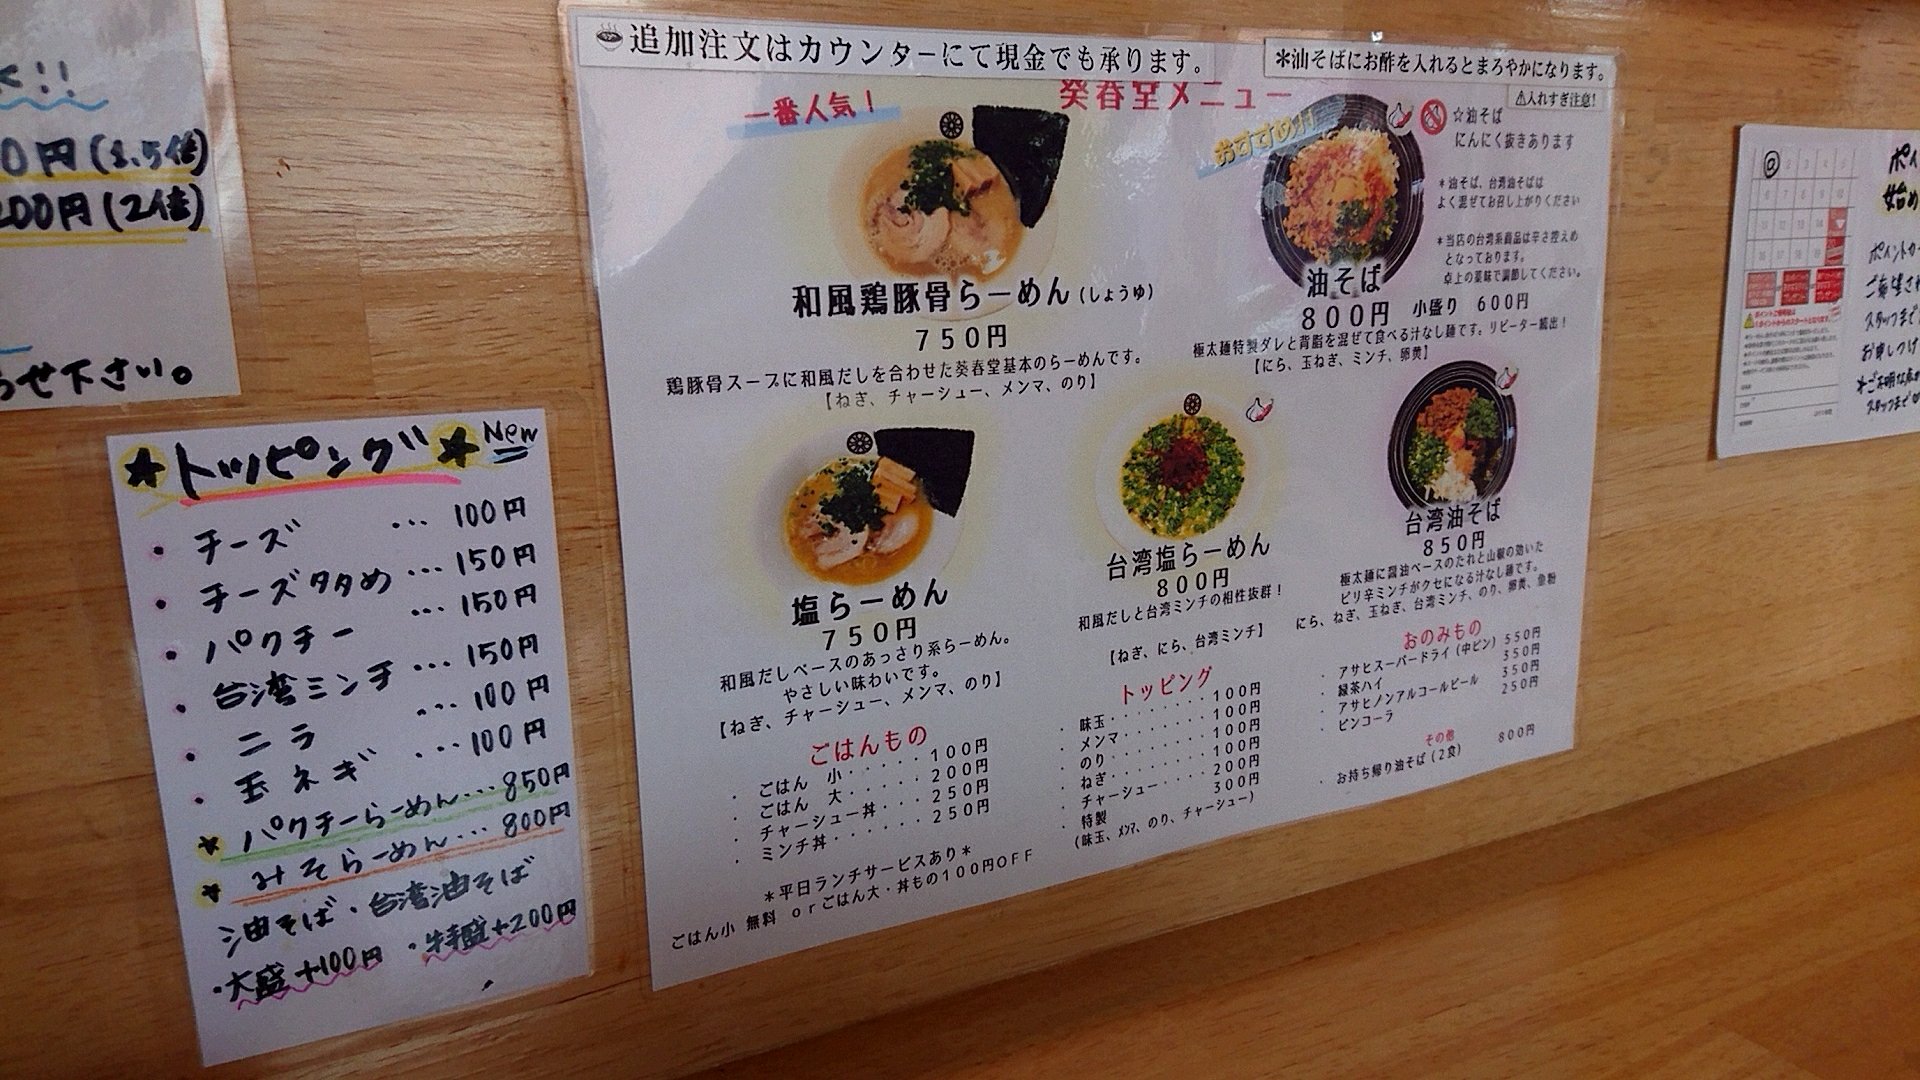 0円(1.5倍)
200円(2倍)
らせ下さい。
★トッピング★ New
・チーズ … 100円
・チーズ多め … 150円
・パクチー … 150円
・台湾ミンチ … 150円
・ニラ … 100円
・玉ネギ … 100円
★パクチーらーめん… 850円
★みそらーめん… 800円
油そば・台湾油そば
・大盛+100円 ・特盛+200円
追加注文はカウンターにて現金でも承ります。
*油そばにお酢を入れるとまろやかになります。
⚠入れすぎ注意!
葵春堂メニュー
一番人気!
和風鶏豚骨らーめん(しょうゆ)
750円
鶏豚骨スープに和風だしを合わせた葵春堂基本のらーめんです。
【ねぎ、チャーシュー、メンマ、のり】
おすすめ!!
☆油そば
にんにく抜きあります
*油そば、台湾油そばは
よく混ぜてお召し上がりください
*当店の台湾系商品は辛さ控えめ
となっております。
卓上の薬味で調節してください。
油そば
800円 小盛り 600円
極太麺特製ダレと背脂を混ぜて食べる汁なし麺です。リピーター続出!
【にら、玉ねぎ、ミンチ、卵黄】
塩らーめん
750円
和風だしベースのあっさり系らーめん。
やさしい味わいです。
【ねぎ、チャーシュー、メンマ、のり】
台湾塩らーめん
800円
和風だしと台湾ミンチの相性抜群!
【ねぎ、にら、台湾ミンチ】
台湾油そば
850円
極太麺に醤油ベースのたれと山椒の効いた
ピリ辛ミンチがクセになる汁なし麺です。
にら、ねぎ、玉ねぎ、台湾ミンチ、のり、卵黄、魚粉
ごはんもの
・ごはん 小・・・・・100円
・ごはん 大・・・・・200円
・チャーシュー丼・・・250円
・ミンチ丼・・・・・・250円
*平日ランチサービスあり*
ごはん小 無料 orごはん大・丼もの100円OFF
トッピング
・味玉・・・・・・・・100円
・メンマ・・・・・・・100円
・のり・・・・・・・・100円
・ねぎ・・・・・・・・100円
・チャーシュー・・・・200円
・特製 300円
(味玉、メンマ、のり、チャーシュー)
おのみもの
・アサヒスーパードライ(中ビン) 550円
・緑茶ハイ 350円
・アサヒノンアルコールビール 350円
・ビンコーラ 250円
その他
・お持ち帰り油そば(2食) 800円
ポイ
始め
ポイントカー
ご希望され
スタッフまで
お申しつけ
*ご不明な点が
スタッフまで